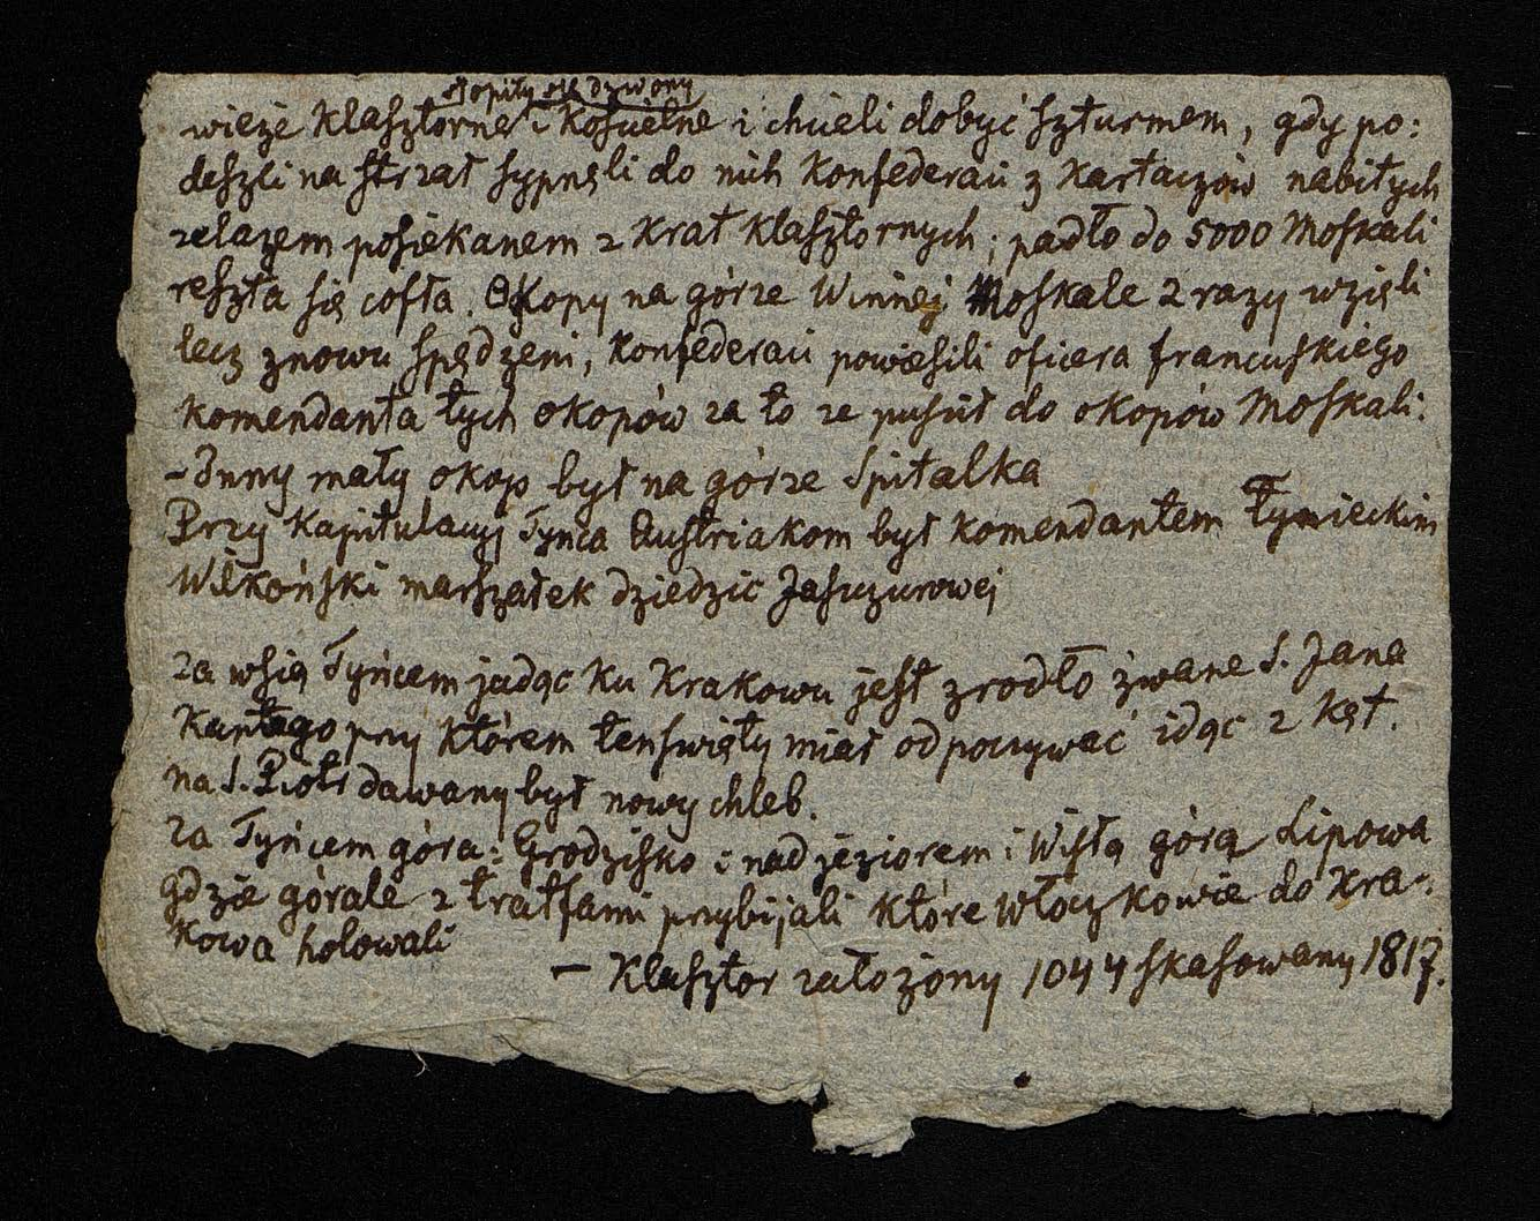 stopiły się dzwony
wieże klasztorne i kościelne i chcieli dobyć szturmem, gdy po:
deszli na strzał sypnęli do nich Konfederaci z kartaczów nabitych
zelazem posiekanem z krat klasztornych; padło do 5000 Moskali
reszta się cofła. Okopy na górze Winnej Moskale 2 razy wzięli
lecz znowu spędzeni, Konfederaci powiesili oficera francuskiego
komendanta tych okopów za to ze puścił do okopów Moskali.
- Inny mały okop był na górze Spitalka
Przy Kapitulacyj Tynca Austriakom był komendantem Tynieckim
Wilkoński marszałek dziedzic Jaszczurowej
za wsią Tyńcem jadąc ku Krakowu jest zrodło zwane S. Jana
Kantego przy którem ten święty miał odpoczywać idąc z Kęt.
na S. Piotr dawany był nowy chleb.
za Tyńcem góra: Grodzisko i nad jeziorem i Wisłą górą Lipowa
gdzie górale z tratfami przybijali które Włoczkowie do Kra-
kowa holowali
— Klasztor założony 1044 skasowany 1817.